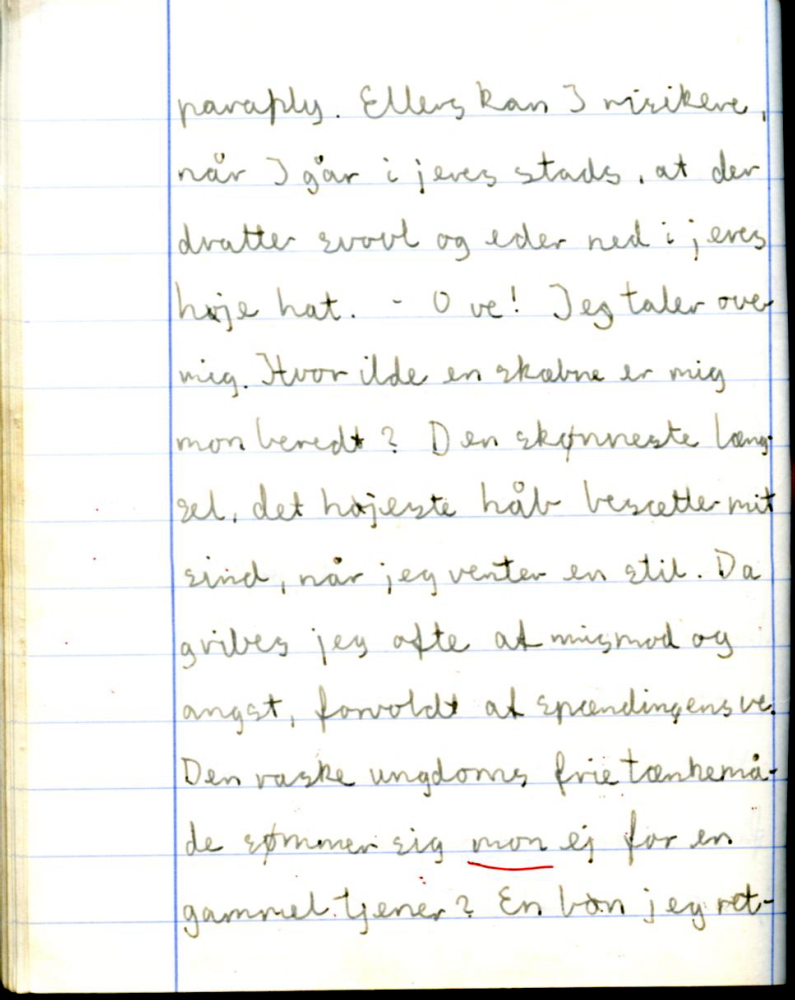 paraply. Ellers kan I risikere,
når I går i jeres stads, at der
dratter svovl og eder ned i jeres
høje hat. - O ve! Jeg taler over
mig. Hvor ilde en skæbne er mig
mon beredt? Den skønneste læng-
sel, det højeste håb besætter mit
sind, når jeg venter en stil. Da
gribes jeg ofte af mismod og
angst, forvoldt af spændingens ve.
Den raske ungdoms frie tænkemå-
de sømmer sig mon ej for en
gammel tjener? En bøn jeg ret-